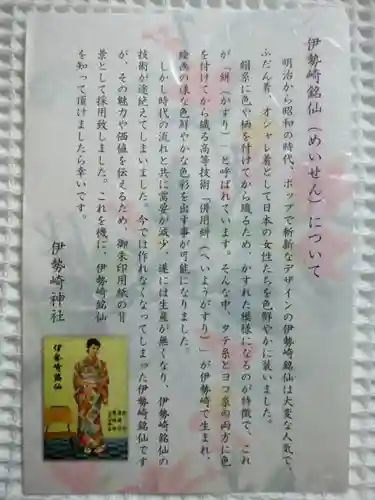 伊勢崎銘仙（めいせん）について
明治から昭和の時代、ポップで斬新なデザインの伊勢崎銘仙は大変な人気で、
ふだん着、オシャレ着として日本の女性たちを色鮮やかに装いました。
絹糸に色や柄を付けてから織るため、かすれた模様になるのが特徴で、これ
が「絣（かすり）」と呼ばれています。そんな中、タテ糸とヨコ糸の両方に色
を付けてから織る高等技術「併用絣（へいようがすり）」が伊勢崎で生まれ、
絵画の様な色鮮やかな色彩を出す事が可能になりました。
しかし時代の流れと共に需要が減少、遂には生産が無くなり、伊勢崎銘仙の
技術が途絶えてしまいました。今では作れなくなってしまった伊勢崎銘仙です
が、その魅力や価値を伝えるため、御朱印用紙の背
景として採用致しました。これを機に、伊勢崎銘仙
を知って頂けましたら幸いです。
伊勢崎神社
伊勢崎銘仙